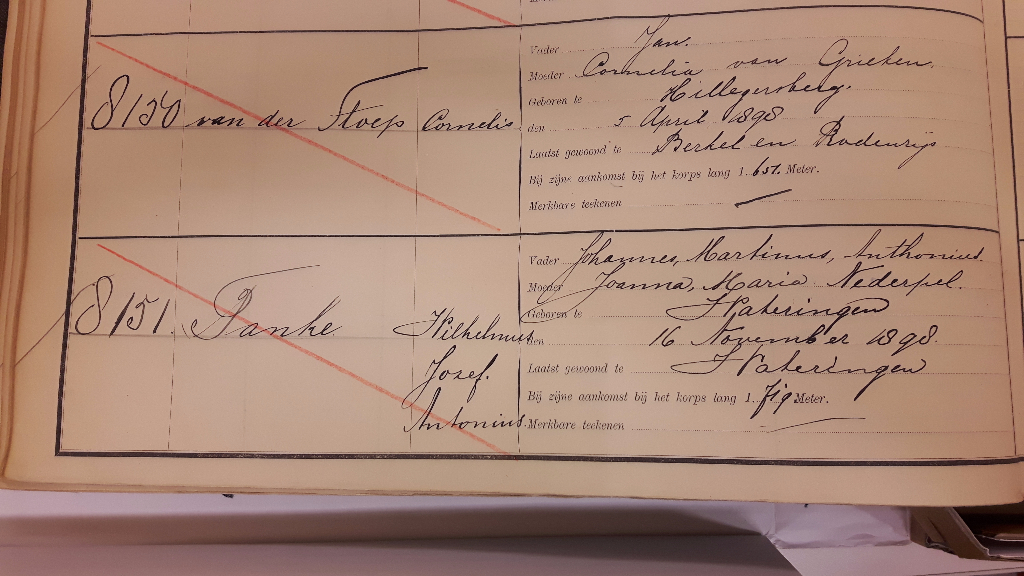 Vader Jan.
Moeder Cornelia van Grieken.
Geboren te Hillegersberg.
8150 van der Stoep Cornelis den 5 April 1898
Laatst gewoond te Berkel en Rodenrijs
Bij zijne aankomst bij het korps lang 1.651. Meter.
Merkbare teekenen —
Vader Johannes, Martinus, Anthonius.
Moeder Joanna, Maria Nederpel.
Geboren te Wateringen
8151. Janke Wilhelmus den 16 November 1898.
Laatst gewoond te Wateringen
Josef.
Bij zijne aankomst bij het korps lang 1.719 Meter.
Antonius. Merkbare teekenen —